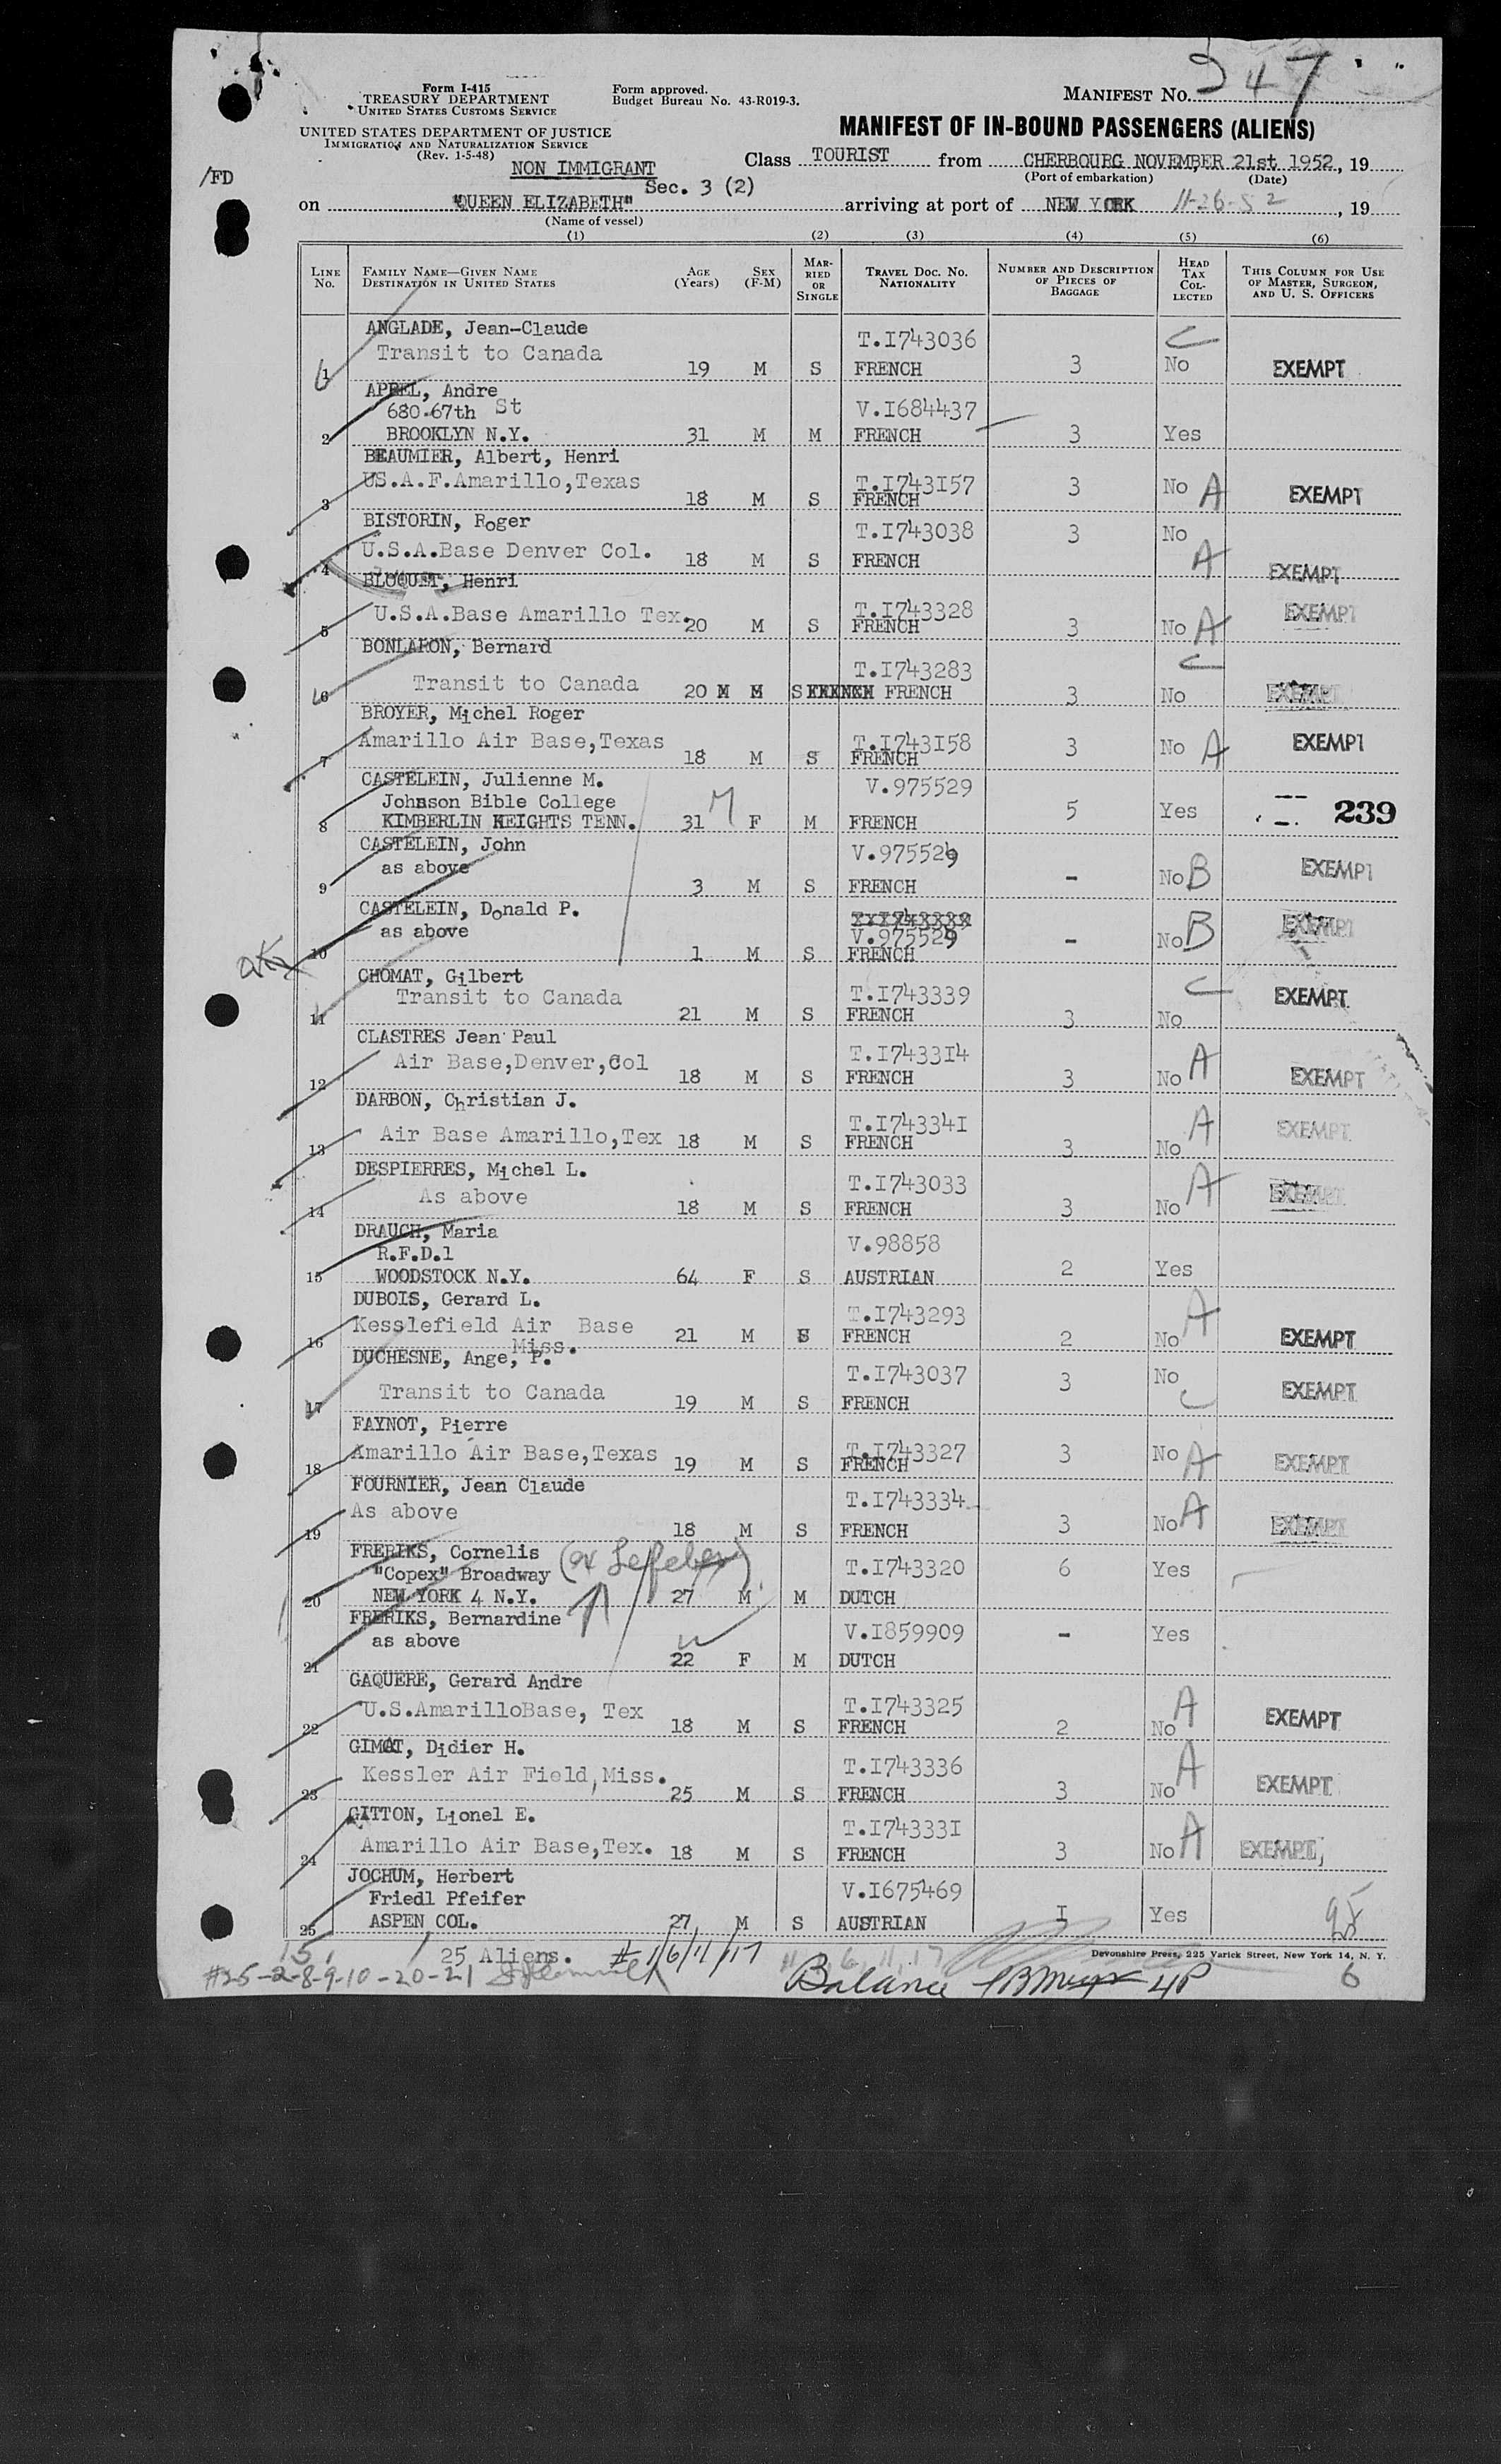 347
Form I-415
TREASURY DEPARTMENT
UNITED STATES CUSTOMS SERVICE
Form approved.
Budget Bureau No. 43-R019-3.
MANIFEST NO.
UNITED STATES DEPARTMENT OF JUSTICE
IMMIGRATION AND NATURALIZATION SERVICE
(Rev. 1-5-48)
MANIFEST OF IN-BOUND PASSENGERS (ALIENS)
/FD
NON IMMIGRANT
Sec. 3 (2)
Class TOURIST from CHERBOURG NOVEMBER 21st 1952, 19
(Port of embarkation) (Date)
on "QUEEN ELIZABETH" arriving at port of NEW YORK 11-26-52, 19
(Name of vessel)
(1) (2) (3) (4) (5) (6)
LINE NO. FAMILY NAME—GIVEN NAME DESTINATION IN UNITED STATES AGE (Years) SEX (F-M) MARRIED OR SINGLE TRAVEL DOC. NO. NATIONALITY NUMBER AND DESCRIPTION OF PIECES OF BAGGAGE HEAD TAX COLLECTED THIS COLUMN FOR USE OF MASTER, SURGEON, AND U. S. OFFICERS
ANGLADE, Jean-Claude
Transit to Canada T.I743036 C
1 19 M S FRENCH 3 No EXEMPT
APREL, Andre
680.67th St V.I684437
2 BROOKLYN N.Y. 31 M M FRENCH 3 Yes
BEAUMIER, Albert, Henri
US.A.F.Amarillo,Texas T.I743157
3 18 M S FRENCH 3 No A EXEMPT
BISTORIN, Roger T.I743038 3 No
4 U.S.A.Base Denver Col. 18 M S FRENCH A EXEMPT
BLOQUET, Henri
U.S.A.Base Amarillo Tex. T.I743328 EXEMPT
5 20 M S FRENCH 3 No A
BONLARON, Bernard
T.I743283 C
6 Transit to Canada 20 M M S FRENCH 3 No EXEMPT
BROYER, Michel Roger
Amarillo Air Base,Texas T.I743158
7 18 M S FRENCH 3 No A EXEMPT
CASTELEIN, Julienne M. V.975529
Johnson Bible College
8 KIMBERLIN HEIGHTS TENN. 31 M F M FRENCH 5 Yes 239
CASTELEIN, John V.975529
as above
9 3 M S FRENCH - No B EXEMPT
CASTELEIN, Donald P.
as above V.975529
10 1 M S FRENCH - No B EXEMPT
CHOMAT, Gilbert
Transit to Canada T.I743339 C EXEMPT
11 21 M S FRENCH 3 No
CLASTRES Jean Paul
Air Base,Denver,Col T.I743314
12 18 M S FRENCH 3 No A EXEMPT
DARBON, Christian J.
T.I743341
13 Air Base Amarillo,Tex 18 M S FRENCH 3 No A EXEMPT
DESPIERRES, Michel L.
As above T.I743033
14 18 M S FRENCH 3 No A EXEMPT
DRAUCH, Maria
R.F.D.1 V.98858
15 WOODSTOCK N.Y. 64 F S AUSTRIAN 2 Yes
DUBOIS, Gerard L.
Kesslefield Air Base T.I743293
16 Miss. 21 M S FRENCH 2 No A EXEMPT
DUCHESNE, Ange, P. T.I743037 3 No
17 Transit to Canada 19 M S FRENCH C EXEMPT
FAYNOT, Pierre
Amarillo Air Base,Texas T.I743327
18 19 M S FRENCH 3 No A EXEMPT
FOURNIER, Jean Claude
As above T.I743334
19 18 M S FRENCH 3 No A EXEMPT
FRERIKS, Cornelis
"Copex" Broadway T.I743320 6 Yes
20 NEW YORK 4 N.Y. 27 M M DUTCH
FRERIKS, Bernardine
as above V.I859909 - Yes
21 22 F M DUTCH
GAQUERE, Gerard Andre
U.S.AmarilloBase, Tex T.I743325
22 18 M S FRENCH 2 No A EXEMPT
GIMAT, Didier H.
Kessler Air Field,Miss. T.I743336
23 25 M S FRENCH 3 No A EXEMPT
GITTON, Lionel E.
T.I743331
24 Amarillo Air Base,Tex. 18 M S FRENCH 3 No A EXEMPT
JOCHUM, Herbert
Friedl Pfeifer V.I675469
25 ASPEN COL. 27 M S AUSTRIAN I Yes 25
25 Aliens. # 1/6/11/17
Devonshire Press, 225 Varick Street, New York 14, N. Y.
#25-2-8-9-10-20-21 Balance 6